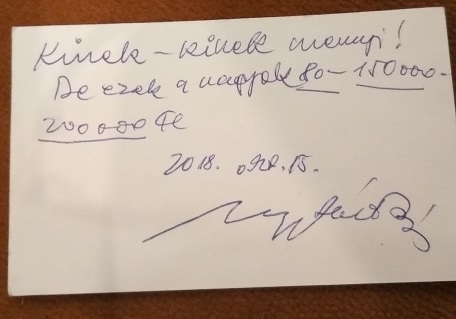 Kinek – kinek mennyi!
De ezek a nagyok 80– 150000–
200000 Ft
2018. okt. 15.